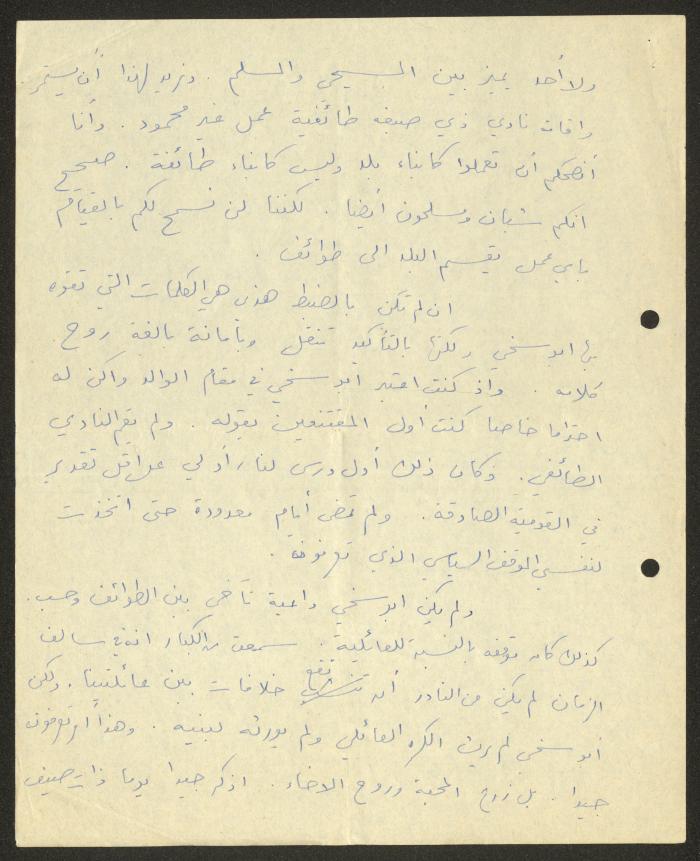 ولا أحد يميز بين المسيحي والمسلم . ونريد لهذا أن يستمر
واقامة نادي ذي صبغة طائفية عمل غير محمود . وأنا
أنصحكم أن تعملوا كابناء بلد وليس كابناء طائفة . صحيح
انكم شبان ومسلمون أيضا . لكننا لن نسمح لكم بالقيام
باي عمل يقسم البلد الى طوائف .
ان لم تكن بالضبط هذه هي الكلمات التي تفوه
بها ابو سخي ولكنها بالتأكيد تنقل وبأمانة بالغة روح
كلامه . واذ كنت اعتبر ابو سخي في مقام الوالد واكن له
احتراما خاصا كنت أول المقتنعين بقوله . ولم يقم النادي
الطائفي . وكان ذلك أول درس لنا ، أو لي على اقل تقدير
في القومية الصادقة . ولم تمض أيام معدودة حتى اتخذت
لنفسي الموقف السياسي الذي تعرفونه .
ولم يكن ابو سخي داعية تآخي بين الطوائف وحسب .
كذلك كان موقفه بالنسبة للعائلية . سمعت من الكبار انه في سالف
الزمان لم يكن من النادر أن تقع خلافات بين عائلتينا . ولكن
ابو سخي لم يرث الكره العائلي ولم يورثه لبنيه . وهذا أمر تعرفونه
جيدا . بل زرع المحبة وروح الاخاء . اذكر جيدا يوما ذات صيف